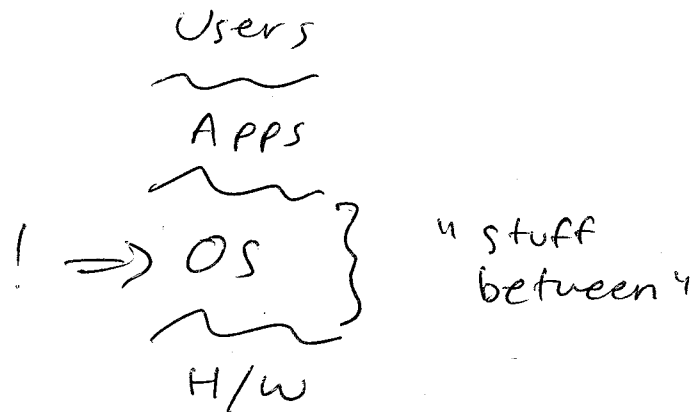 Users
Apps
! => OS
"stuff
between"
H/W